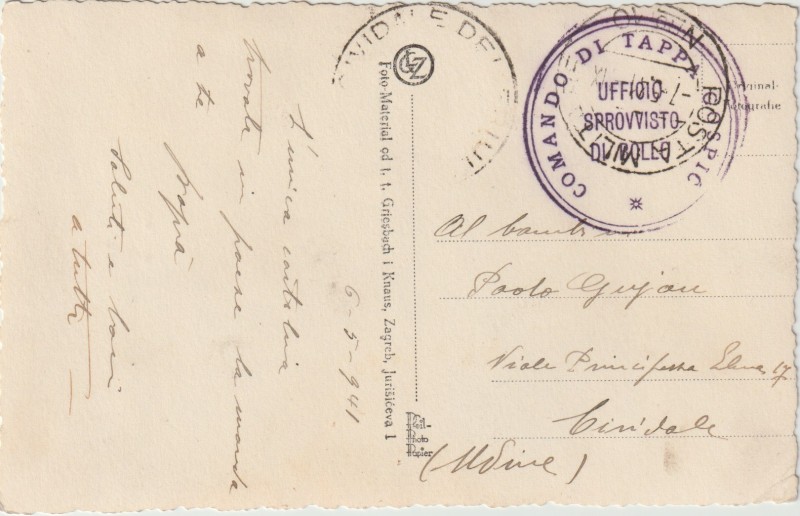 6-5-941
L'unica cartolina
trovata in paese la manda
a te
papà
Saluti e baci
a tutti
Foto-Material od t. t. Griesbach i Knaus, Zagreb, Jurišićeva 1
CIVIDALE DEL
COMANDO DI TAPPA
GOSPIC
UFFICIO
SPROVVISTO
DI BOLLO
POSTA MILIT
Original-
fotografie
Al bambino
Paolo
Viale Principessa Elena 17
Cividale
(Udine)